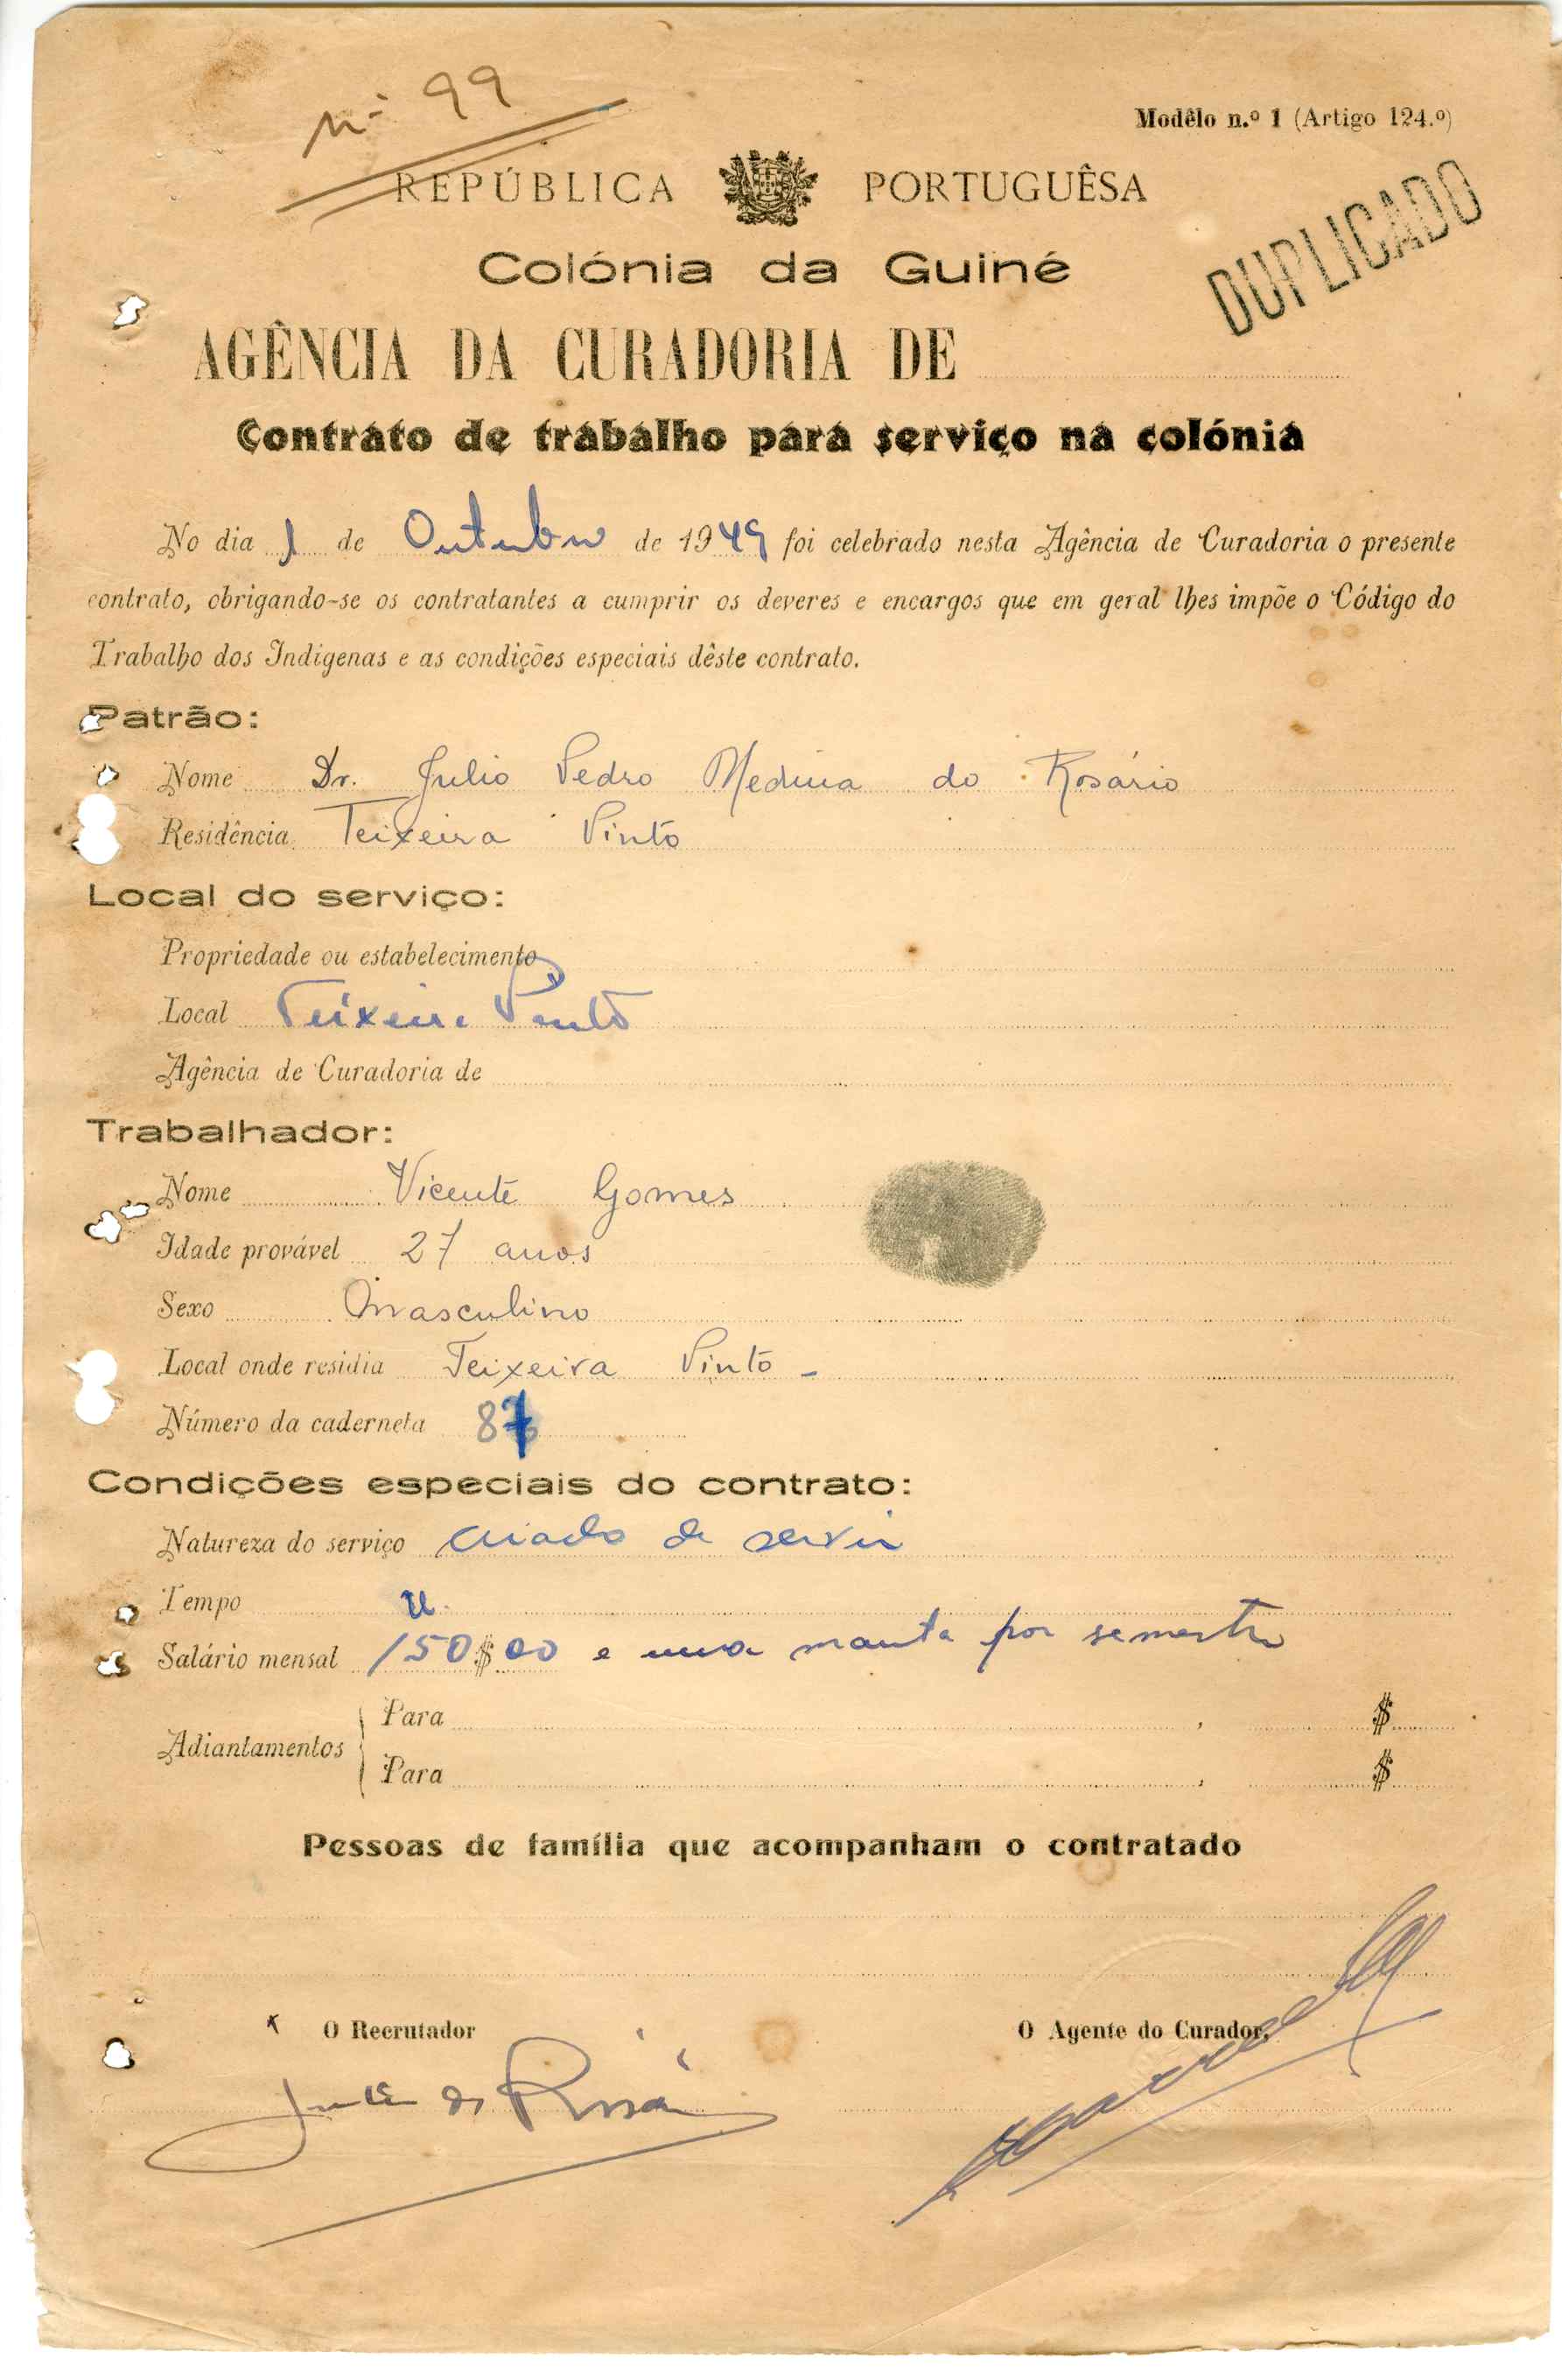 nº 99
Modêlo n.º 1 (Artigo 124.º)
REPÚBLICA PORTUGUÊSA
DUPLICADO
Colónia da Guiné
AGÊNCIA DA CURADORIA DE
Contrato de trabalho para serviço na colónia
No dia 1 de Outubro de 1949 foi celebrado nesta Agência de Curadoria o presente
contrato, obrigando-se os contratantes a cumprir os deveres e encargos que em geral lhes impõe o Código do
Trabalho dos Indígenas e as condições especiais dêste contrato.
Patrão:
Nome Dr. Julio Pedro Medina do Rosário
Residência Teixeira Pinto
Local do serviço:
Propriedade ou estabelecimento
Local Teixeira Pinto
Agência de Curadoria de
Trabalhador:
Nome Vicente Gomes
Idade provável 27 anos
Sexo Masculino
Local onde residia Teixeira Pinto -
Número da caderneta 87
Condições especiais do contrato:
Natureza do serviço criado de servir
Tempo
Salário mensal 150$00 e uma manta por semestre
Adiantamentos
Para , $
Para , $
Pessoas de família que acompanham o contratado
O Recrutador O Agente do Curador,